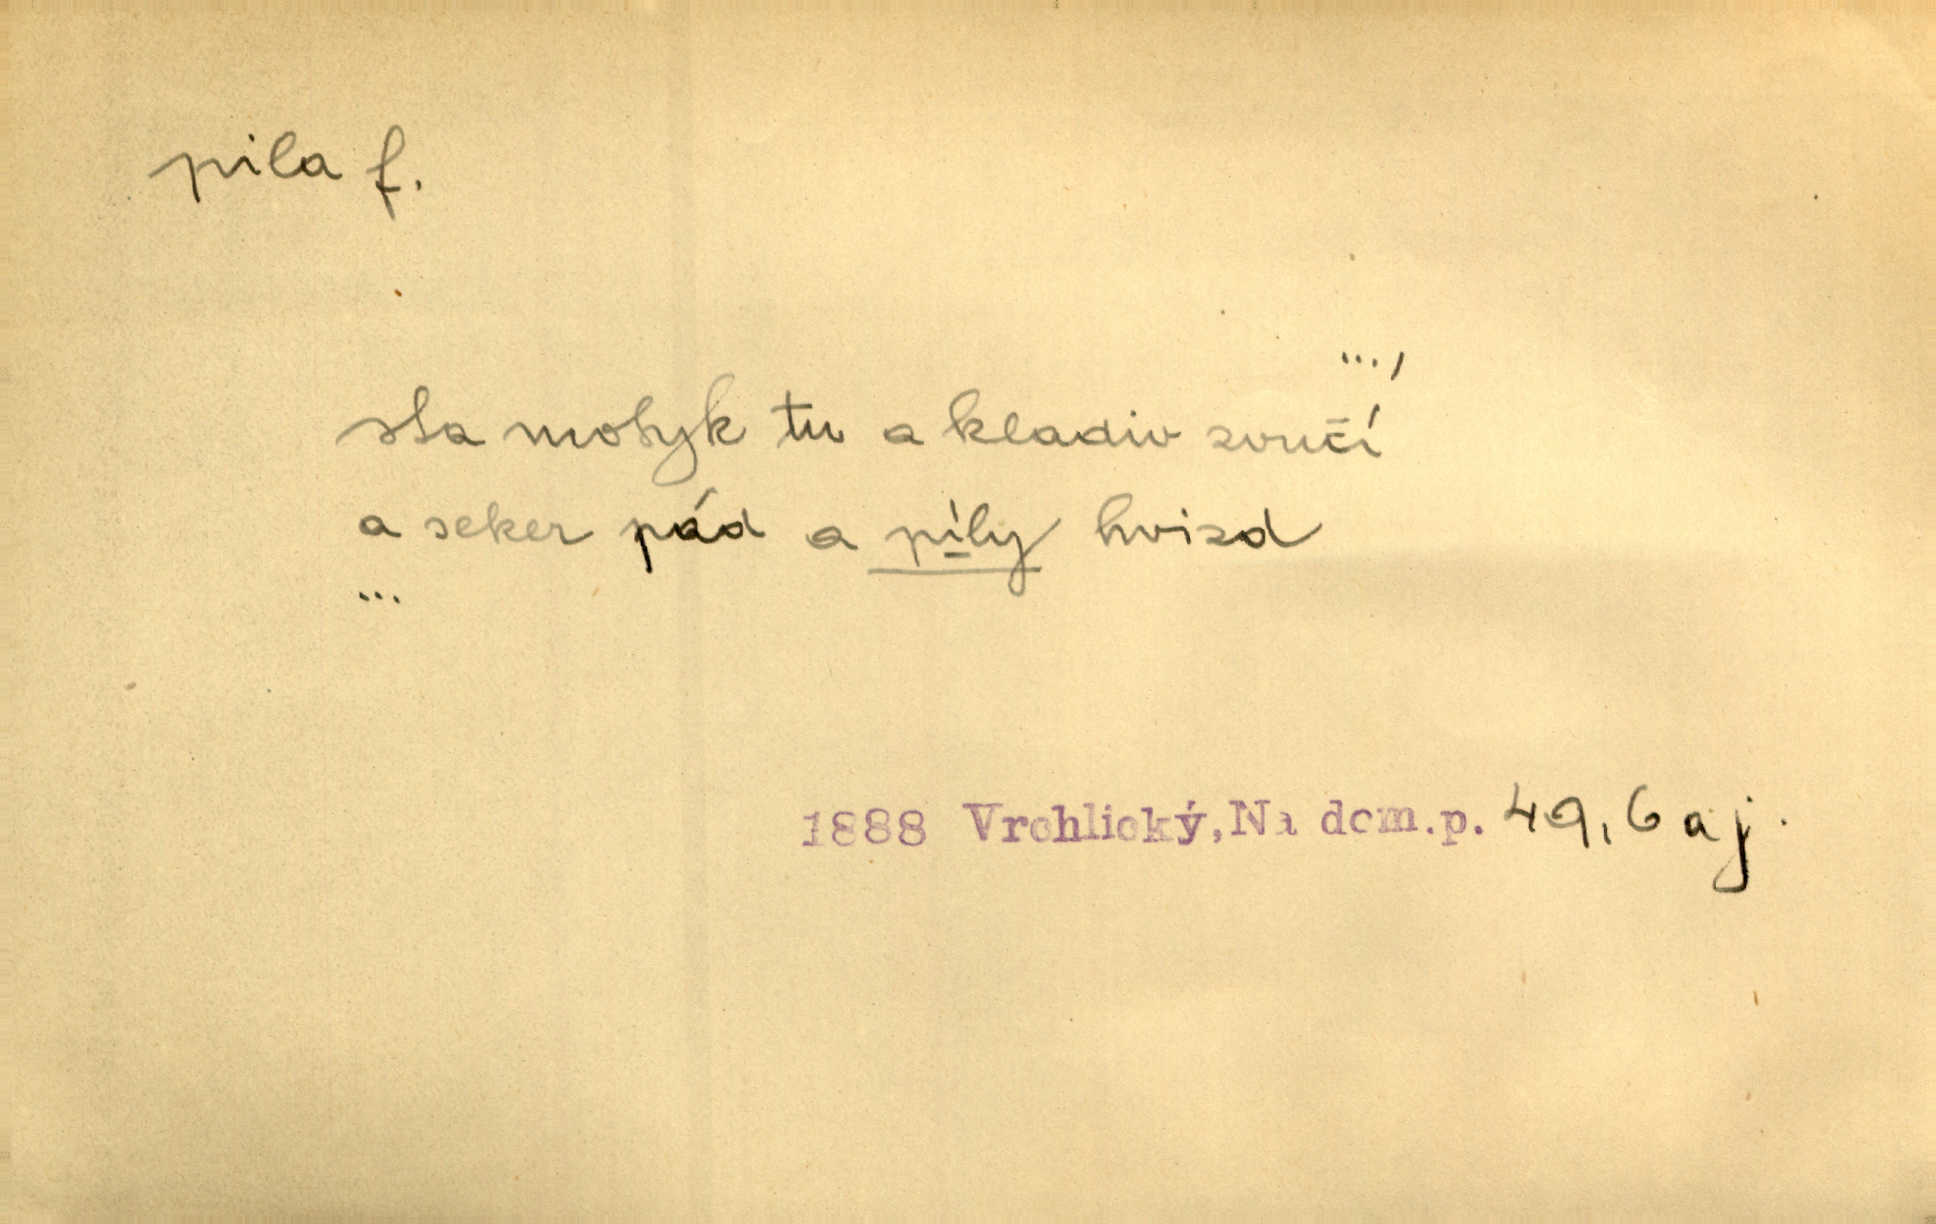 pila f.
...,
sta motyk tu a kladiv zvučí
a seker pád a píly hvizd
...
1888 Vrchlický, Na dom. p. 49, 6 a j.